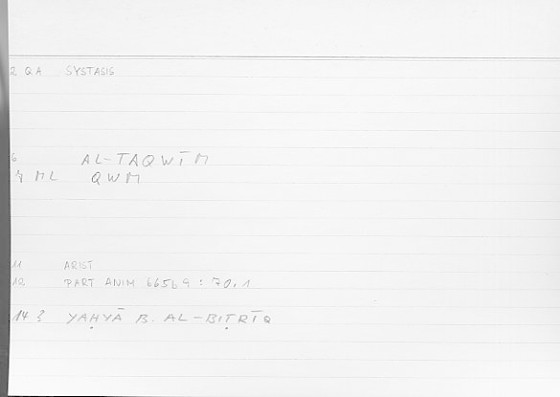 2 QA SYSTASIS
6 AL-TAQWĪM
ML QWM
11 ARIST
12 PART ANIM 665b9 : 70,1
14 YAḤYĀ B. AL-BIṬRĪQ